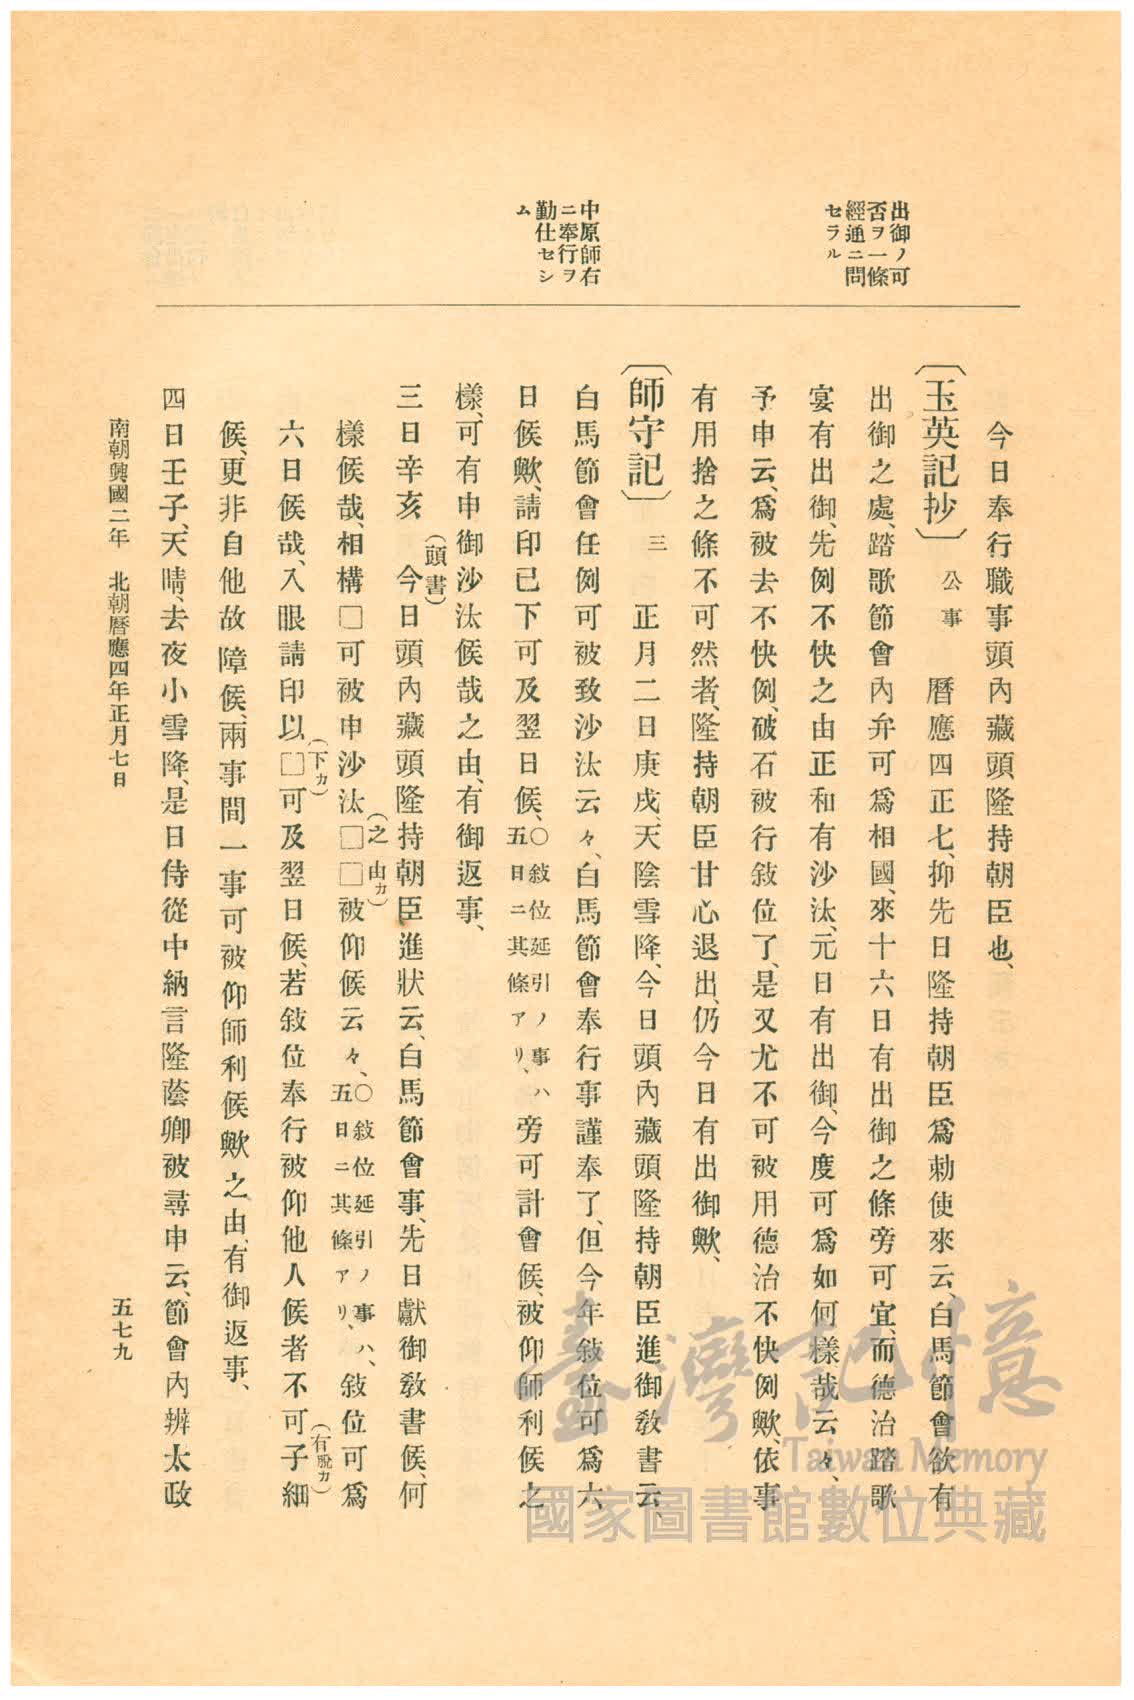 出御ノ可
否ヲ一條
經通ニ問
セラル
中原師右
ニ奉行ヲ
勤仕セシ
ム
今日奉行職事頭內藏頭隆持朝臣也、
〔玉英記抄〕公事 曆應四正七、抑先日隆持朝臣爲勅使來云、白馬節會欲有
出御之處、踏歌節會內弁可爲相國、來十六日有出御之條旁可宜、而德治踏歌
宴有出御、先例不快之由正和有沙汰、元日有出御、今度可爲如何樣哉云々、
予申云、爲被去不快例、破石被行敍位了、是又尤不可被用德治不快例歟、依事
有用捨之條不可然者、隆持朝臣甘心退出、仍今日有出御歟、
〔師守記〕三 正月二日庚戌、天陰雪降、今日頭內藏頭隆持朝臣進御敎書云、
白馬節會任例可被致沙汰云々、白馬節會奉行事謹奉了、但今年敍位可爲六
日候歟、請印已下可及翌日候、○敍位延引ノ事ハ五日ニ其條アリ、旁可計會候、被仰師利候之
樣、可有申御沙汰候哉之由、有御返事、
三日辛亥(頭書)今日頭內藏頭隆持朝臣進狀云、白馬節會事、先日獻御敎書候、何
樣候哉、相構□可被申沙汰□□(之由カ)被仰候云々、○敍位延引ノ事ハ、五日ニ其條アリ、敍位可爲
六日候哉、入眼請印以□(下カ)可及翌日候、若敍位奉行被仰他人候者不可子細(有脫カ)
候、更非自他故障候、兩事間一事可被仰師利候歟之由、有御返事、
四日壬子、天晴、去夜小雪降、是日侍從中納言隆蔭卿被尋申云、節會內辨太政
南朝興國二年 北朝曆應四年正月七日
五七九
臺灣記憶
Taiwan Memory
國家圖書館數位典藏